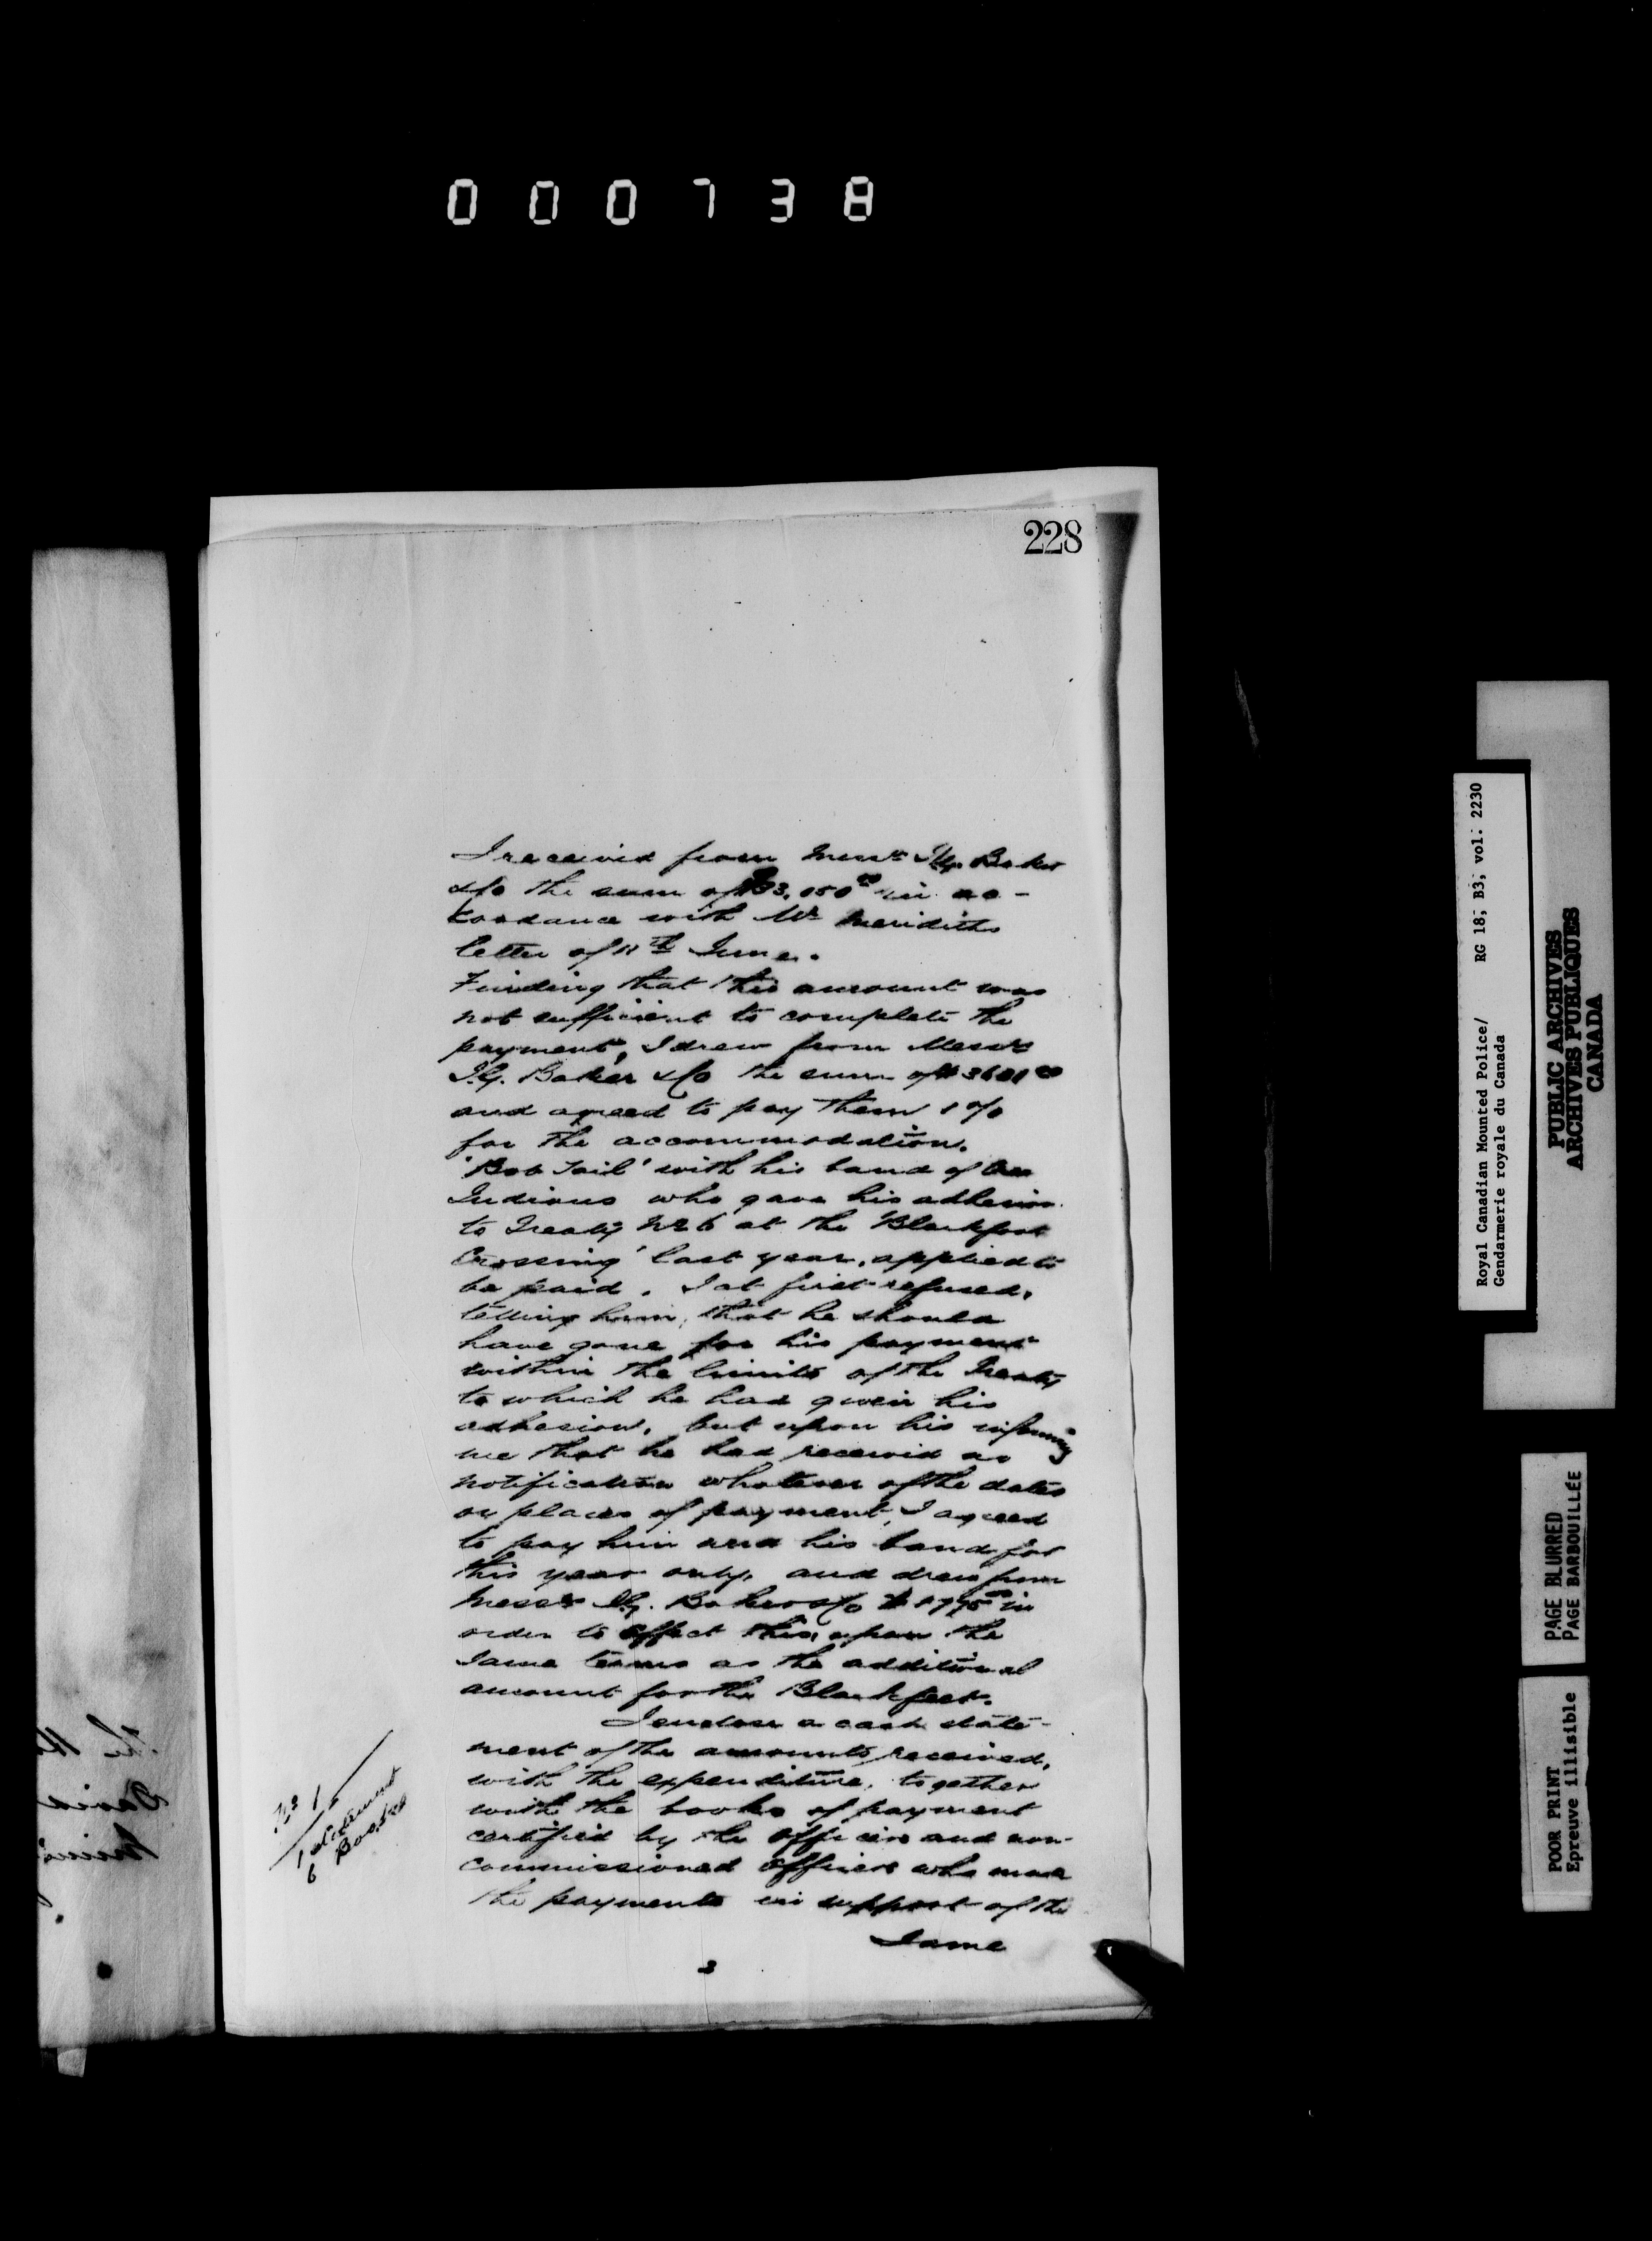 000738
228
I received from Messrs I.G. Baker
&Co the sum of $33,050 00 in ac-
cordance with Mr Meridiths
letter of 11th June.
Finding that this amount was
not sufficient to complete the
payment, I drew from Messrs
I.G. Baker &Co the sum of $ 3601 00
and agreed to pay them 1 %
for the accommodation.
'Bob Tail' with his band of Cree
Indians who gave his adhesion
to Treaty No 6 at the 'Blackfoot
Crossing' last year, applied to
be paid. I at first refused,
telling him, that he should
have gone for his payment
within the limits of the Treaty
to which he had given his
adhesion, but upon his informing
me that he had received no
notification whatever of the dates
or places of payment, I agreed
to pay him and his band for
this year only, and drew from
Messrs I.G. Baker &Co $ 1775 00 in
order to effect this, upon the
same terms as the additional
amount for the Blackfeet.
I enclose a cash state-
ment of the amounts received,
with the expenditure, together
with the books of payment
certified by the officers and non-
commissioned officers who made
the payments in support of the
same
No 1
1 statement
6 Books
Royal Canadian Mounted Police/ RG 18; B3; vol. 2230
Gendarmerie royale du Canada
PUBLIC ARCHIVES
ARCHIVES PUBLIQUES
CANADA
PAGE BLURRED
PAGE BARBOUILLÉE
POOR PRINT
Epreuve illisible